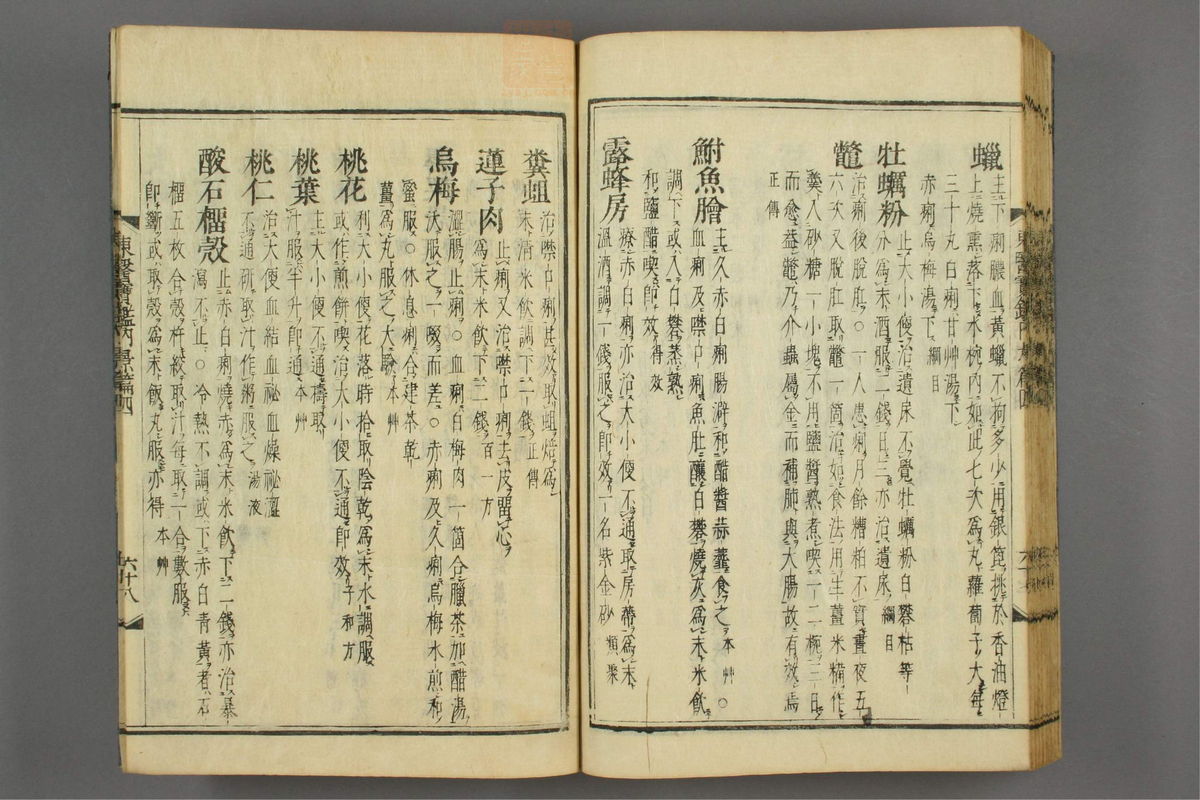 蠟
主下痢膿血黃蠟不拘多少用銀篦挑於香油燈
上燒熏落下水椀內如此七次爲丸蘿蔔子大每
三十丸白痢甘艸湯下
赤痢烏梅湯下 綱目
牡蠣粉
止大小便治遺尿不覺牡蠣粉白礬枯等
分爲末酒服二錢日三亦治遺尿 綱目
鼈
治痢後脫肛○一人患痢月餘糟粕不實晝夜五
六次又脫肛取鼈一箇治如食法用生薑米糯作
羹入砂糖一小塊不用鹽醬熟煮喫一二椀三日
而愈益鼈乃介蟲屬金而補肺與大腸故有效焉
正傳
鮒魚膾
主久赤白痢腸澼和酢醬蒜虀食之 本艸○
血痢及噤口痢魚肚釀白礬燒灰爲末米飮
調下或入白礬蒸熟
和鹽醋喫卽效 得效
露蜂房
療赤白痢亦治大小便不通取房蔕爲末
溫酒調一錢服之卽效一名紫金砂 類聚
糞蛆
治噤口痢甚效取蛆焙爲
末淸米飮調下一錢 正傳
蓮子肉
止痢又治噤口痢去皮留心
爲末米飮下二錢 百一方
烏梅
澁腸止痢○血痢白梅肉一箇合臘茶加醋湯
沃服之一啜而差○赤痢及久痢烏梅水煎和
蜜服○休息痢合建茶乾
薑爲丸服之大驗 本艸
桃花
利大小便花落時拾取陰乾爲末水調服
或作煎餠喫治大小便不通卽效 子和方
桃葉
主大小便不通擣取
汁服半升卽通 本艸
桃仁
治大便血結血祕血燥祕澁
不通硏取汁作粥服之 湯液
酸石榴殼
止赤白痢燒赤爲末米飮下二錢亦治暴
瀉不止○冷熱不調或下赤白靑黃者石
榴五枚合殼杵絞取汁每取一合數服
卽斷或取殼爲末飯丸服亦得 本艸
東醫寶鑑內景篇四
六十八